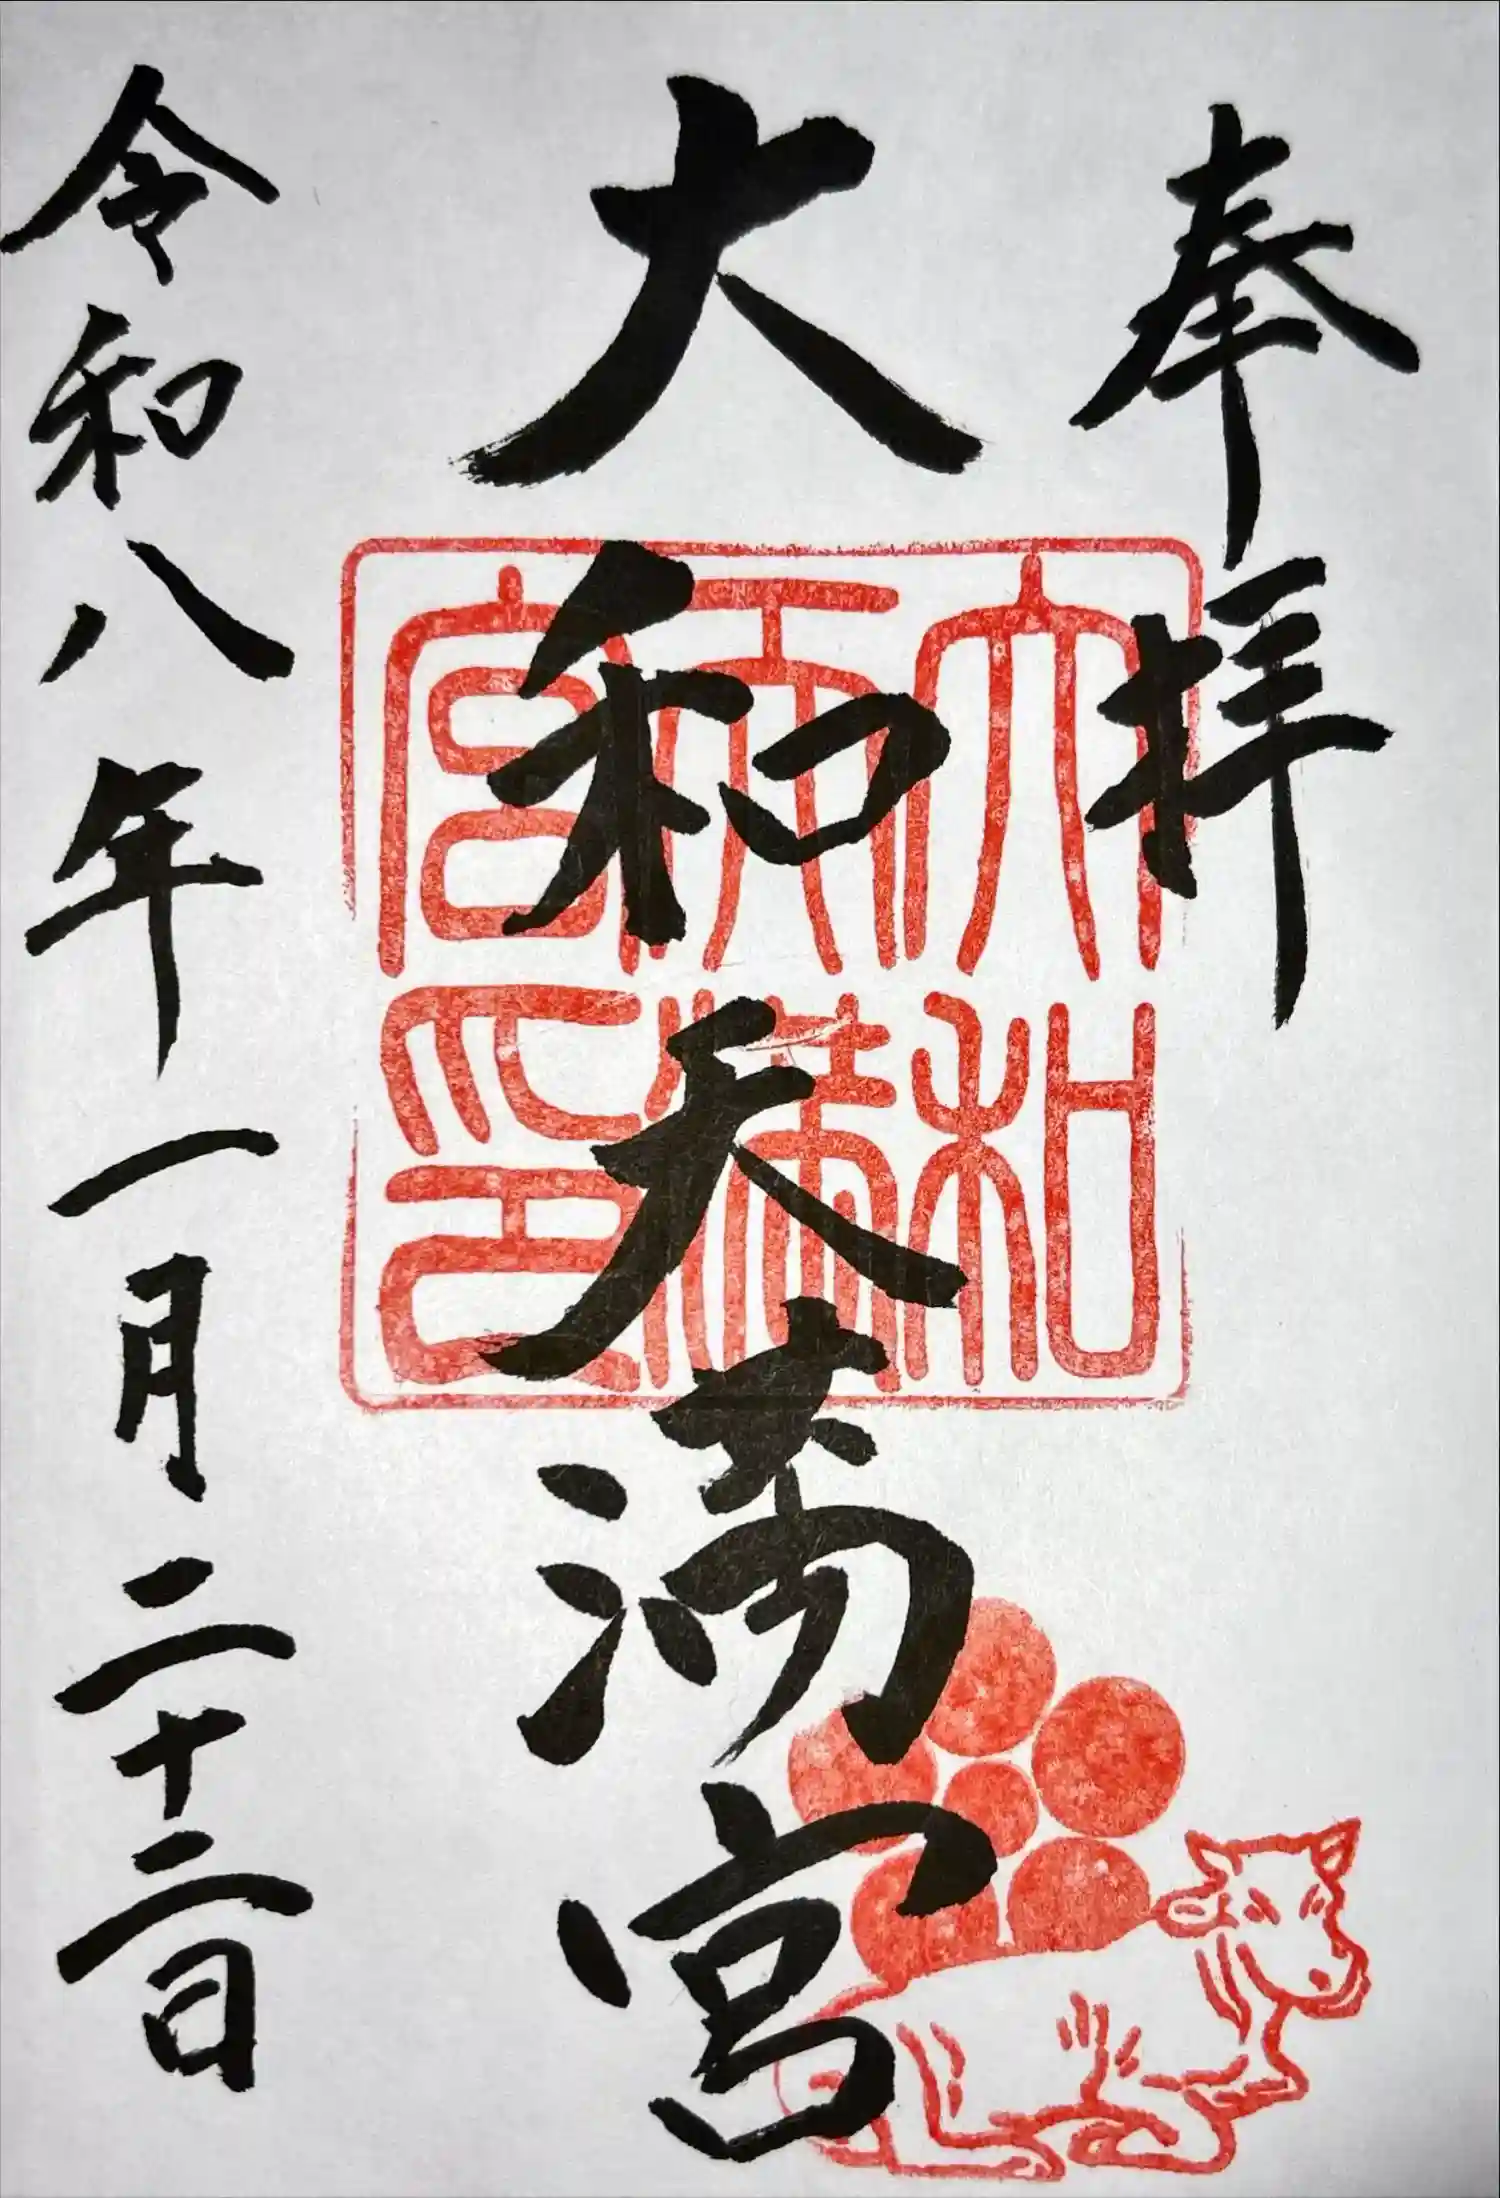 奉拝
大和天満宮
大和
天満
宮印
令和八年一月二十二日